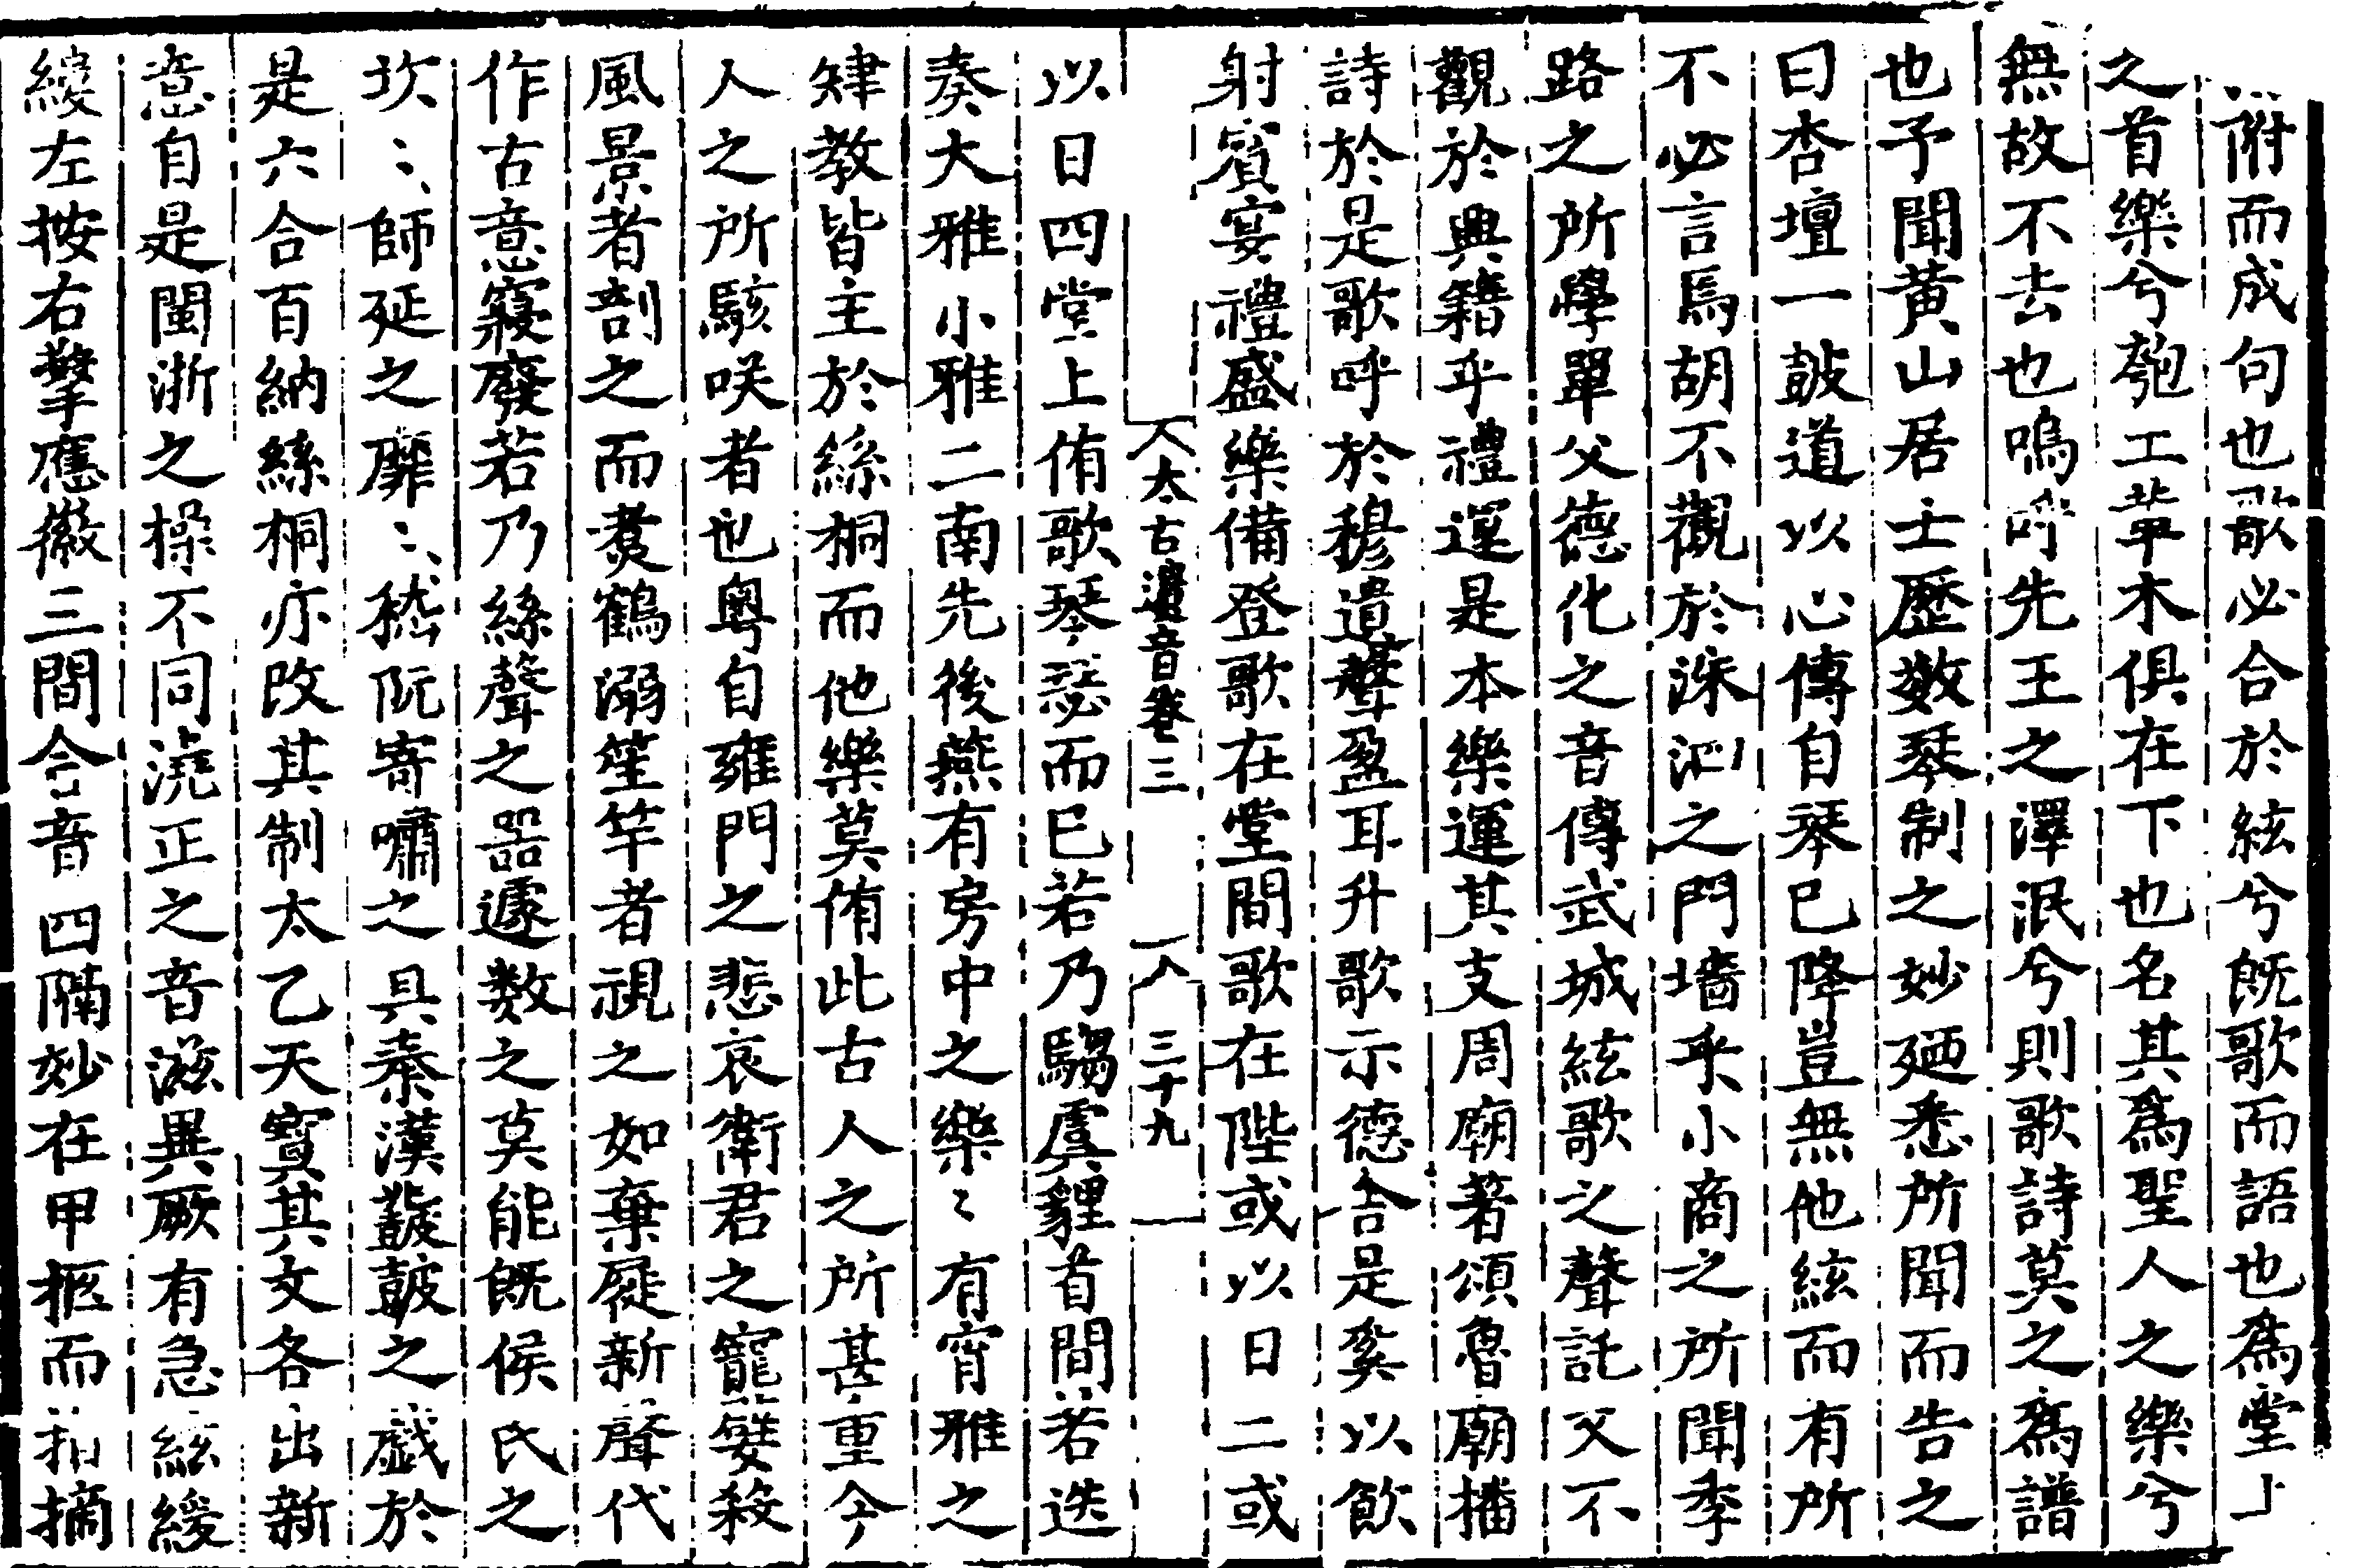 附而成句也歌必合於絃兮旣歌而語也為堂上
之首樂兮匏工革木俱在下也名其為聖人之樂兮
無故不去也嗚呼先王之澤泯兮則歌詩莫之為譜
也予聞黃山居士歷數琴制之妙廼悉所聞而告之
曰杏壇一鼓道以心傳自琴已降豈無他絃而有所
不必言焉胡不觀於洙泗之門墻乎小商之所聞季
路之所學單父德化之音傳武城絃歌之聲託又不
觀於典籍乎禮運是本樂運其支周廟著頌魯廟播
詩於是歌呼於穆遺聲盈耳升歌示德合是奚以飲
射賓宴禮盛樂備登歌在堂間歌在陛或以日二或
太古遺音卷三 三十九
以日四堂上侑歌琴瑟而已若乃騶虞貍首間若迭
奏大雅小雅二南先後燕有房中之樂〻有宵雅之
肄教皆主於絲桐而他樂莫侑此古人之所甚重今
人之所駭咲者也粵自雍門之悲哀衛君之寵嬖殺
風景者剖之而煑鶴溺笙竽者視之如棄屣新聲代
作古意寢廢若乃絲聲之器遽數之莫能旣侯氏之
坎〻師延之靡〻嵇阮寄嘯之具秦漢鼗鼓之戲於
是六合百納絲桐亦改其制太乙天寶其文各出新
意自是閩浙之操不同澆正之音滋異厥有急絃緩
緩左按右擎應徽三間合音四隔妙在甲抠而拍摘